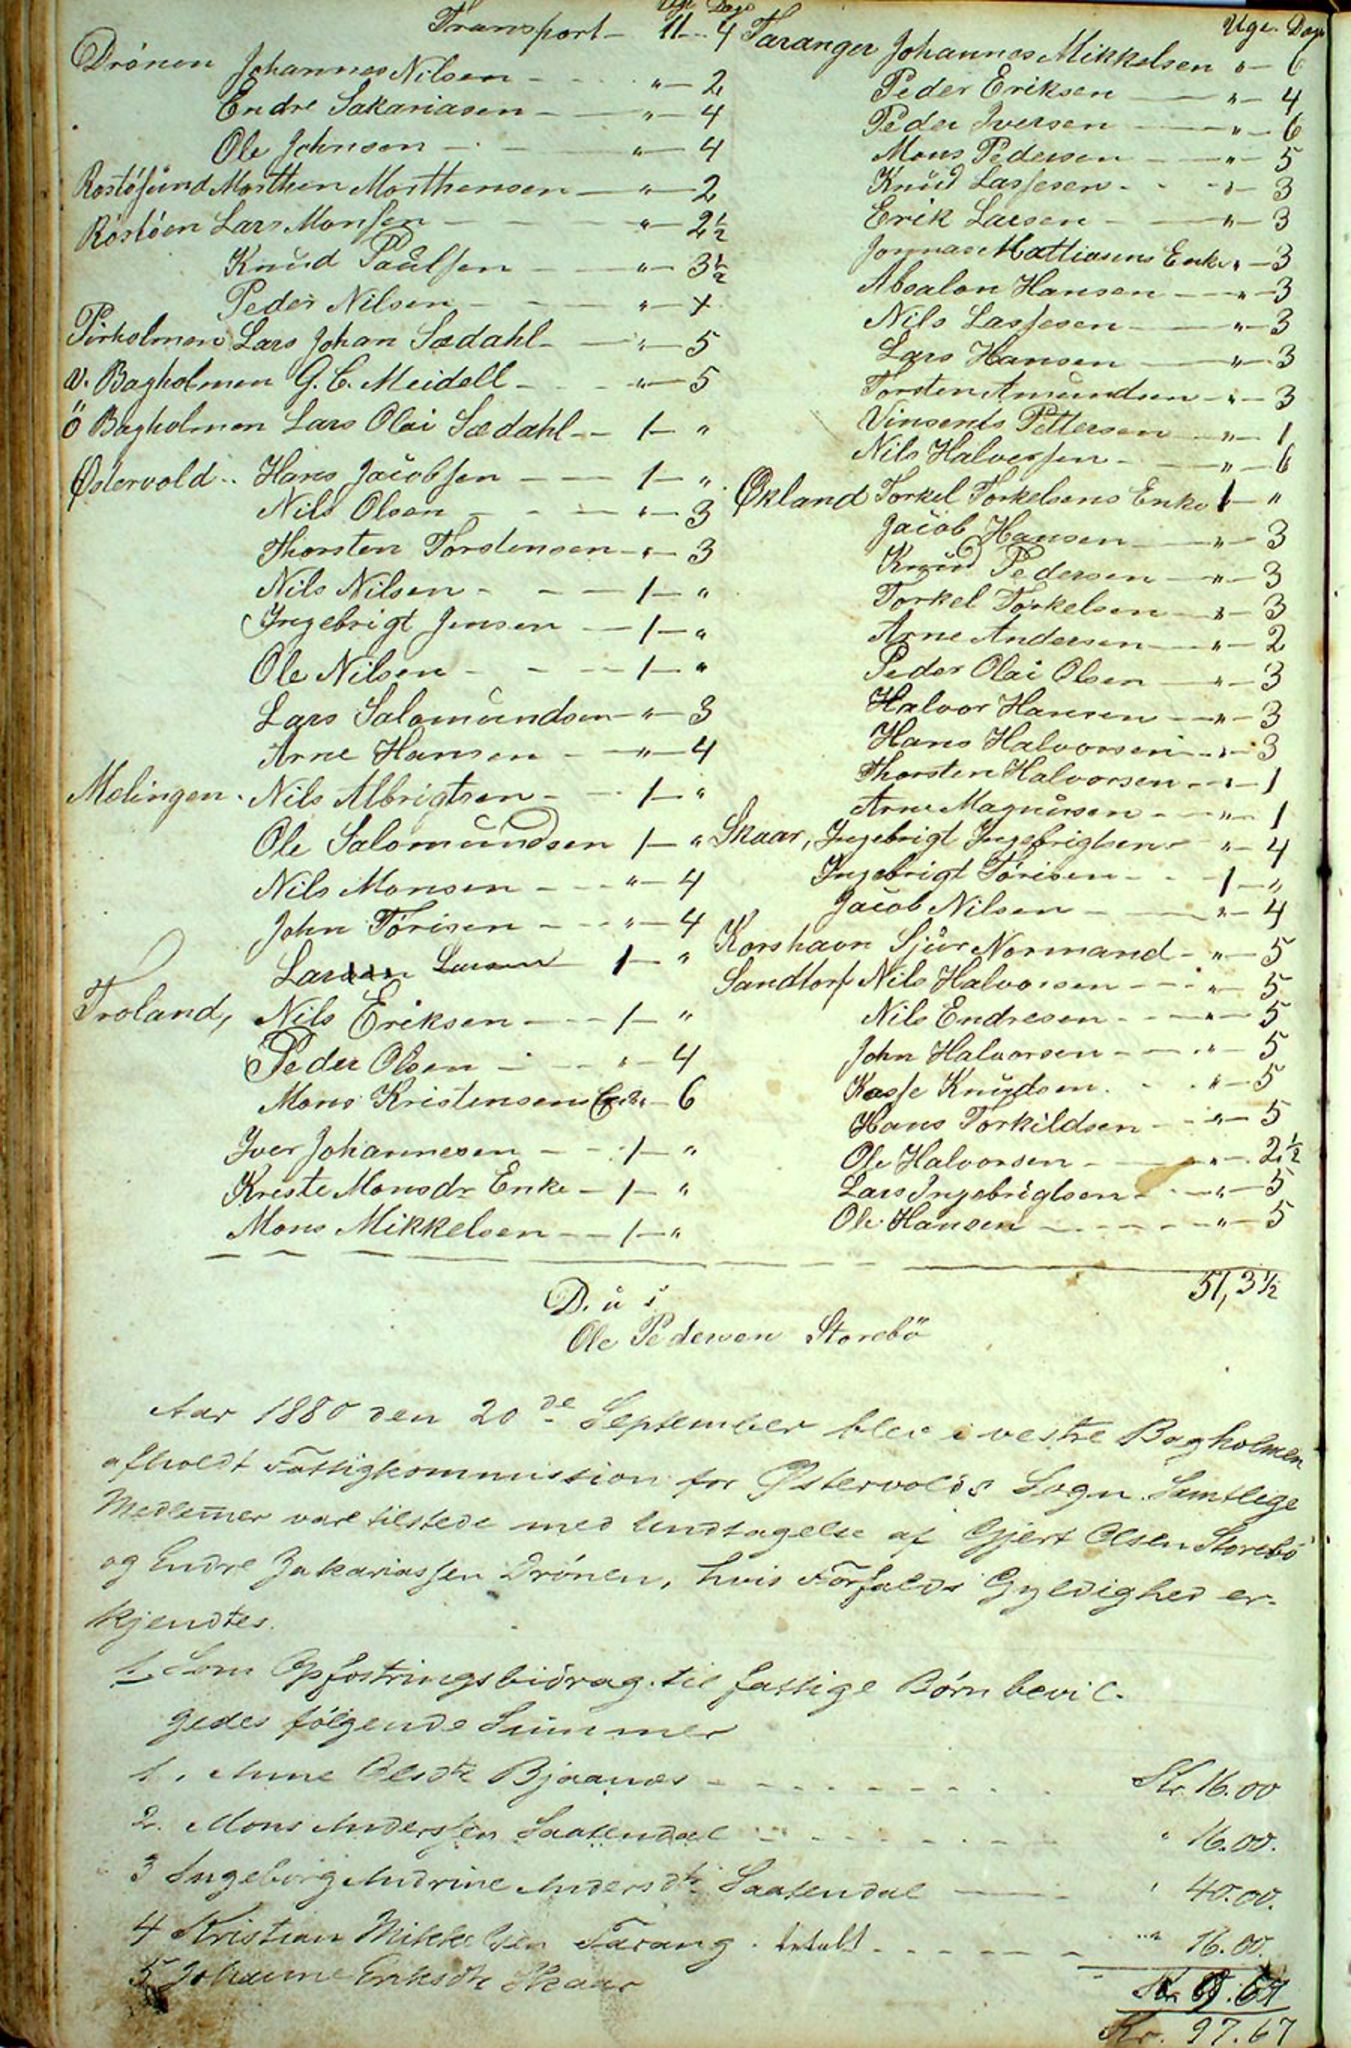 Uge Dage
Transport - 11 - 4
Drönen Johannes Nilsen - " - 2
Endre Sakariasen - " - 4
Ole Johnsen - " - 4
Rostösund Morthen Morthensen - " - 2
Röstöen Lars Monsen - " - 2 1/2
Knud Paulsen - " - 3 1/2
Peder Nilsen - " - +
Pirholmen Lars Johan Sædahl - " - 5
v. Bagholmen G. C. Meidell - " - 5
ö Bagholmen Lars Olai Sædahl - 1 - "
Østervold .. Hans Jacobsen - 1 - "
Nils Olsen - " - 3
Thorsten Torstensen - " - 3
Nils Nilsen - 1 - "
Ingebrigt Jensen - 1 - "
Ole Nilsen - 1 - "
Lars Salomundsen - " - 3
Arne Hansen - " - 4
Melingen. Nils Albrigtsen - 1 - "
Ole Salomundsen 1 - "
Nils Monsen - " - 4
John Törisen - " - 4
Larsen 1 - "
Troland, Nils Eriksen - 1 - "
Peder Olsen - " - 4
Mons Kristensens Enke " - 6
Iver Johannesen - 1 - "
Kreste Monsdr Enke - 1 - "
Mons Mikkelsen - 1 - "
Uge Dage
Taranger Johannes Mikkelsen " - 6
Peder Eriksen - " - 4
Peder Iversen - " - 6
Mons Pedersen - " - 5
Knud Lassesen - " - 3
Erik Larsen - " - 3
Jonnas Mattiasens Enke " - 3
Absalon Hansen - " - 3
Nils Lassesen - " - 3
Lars Hansen - " - 3
Torsten Amundsen - " - 3
Vinsents Pettersen - " - 1
Nils Halvorsen - " - 6
Økland Torkel Torkelsens Enke 1 - "
Jacob Hansen - " - 3
Knud Pedersen - " - 3
Torkel Torkelsen - " - 3
Arne Andersen - " - 2
Peder Olai Olsen - " - 3
Halvor Hansen - " - 3
Hans Halvorsen - " - 3
Thorsten Halvorsen - " - 1
Arne Magnusen - " - 1
Skaar, Ingebrigt Ingebrigtsen - " - 4
Ingebrigt Törisen - 1 - "
Jacob Nilsen - " - 4
Korshavn Sjur Normand - " - 5
Sandtorf Nils Halvorsen - " - 5
Nils Endresen - " - 5
John Halvorsen - " - 5
Lasse Knudsen - " - 5
Hans Torkildsen - " - 5
Ole Halvorsen - " - 2 1/2
Lars Ingebrigtsen - " - 5
Ole Hansen - " - 5
51, 3 1/2
D. u. s.
Ole Pedersen Storebö
Aar 1880 den 20de September blev i vestre Bagholmen
afholdt Fattigkommission for Østervolds Sogn. Samtlige
Medlemer var tilstede med Undtagelse af Gjert Olsen Storebö
og Endre Zakariassen Drönen, hvis Forfalds Gyldighed er-
kjendtes.
1. Som Opfostringsbidrag til fattige Börn bevil-
gedes fölgende Summer
1. Anne Olsdtr Bjaanæs - Kr. 16.00
2. Mons Anderssen Saatendal - " 16.00.
3 Ingeborg Andrine Andersdtr Saatendal - " 40.00.
4 Kristian Mikkelsen Tarang. betalt - " 16.00.
5 Johanne Eriksdtr Skaar Kr 9.67
Kr. 97.67